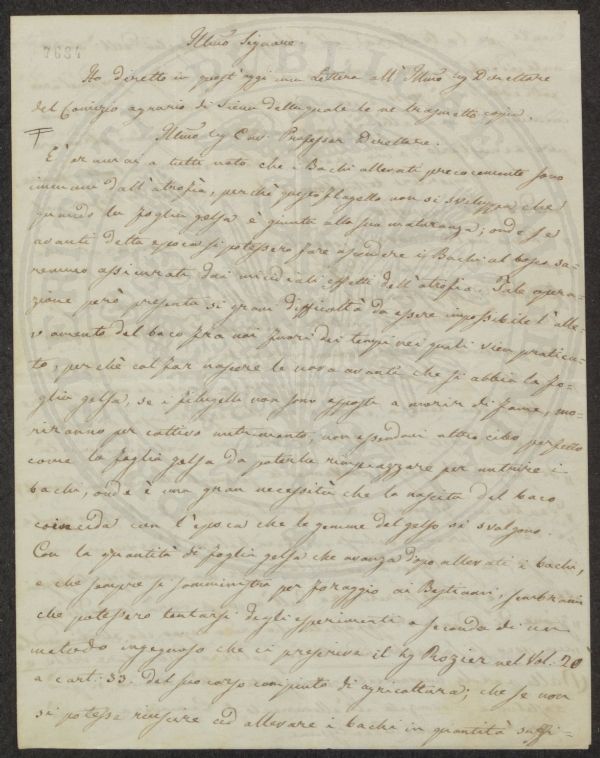 7634
Illmo Signore.
Ho diretto in quest'oggi una Lettera all'Illmo Sig Direttore
del Comizio agrario di Siena della quale le ne trasmetto copia.
Illmo Sig Cav. Professor Direttore.
E' ormai a tutti noto che i Bachi allevati precocemente sono
immuni dall'atrofia, perchè questo flagello non si sviluppa che
quando la foglia gelsa è giunta alla sua maturanza; onde se
avanti detta epoca si potessero fare ascendere i Bachi al bosco sa-
remmo assicurati dai micidiali effetti dell'atrofia. Tale opera-
zione però presenta sì gravi difficoltà da essere impossibile l'alle-
vamento del baco fra noi fuori dei tempi nei quali vien pratica-
to, perchè col far nascere le uova avanti che si abbia la fo-
glia gelsa, se i filugelli non sono esposti a morir di fame, mo-
riranno per cattivo nutrimento, non essendovi altro cibo perfetto
come la foglia gelsa da poterla rimpiazzare per nutrire i
bachi, onde è una gran necessità che la nascita del baco
coincida con l'epoca che le gemme del gelso si svolgono.
Con la quantità di foglia gelsa che avanza dopo allevati i bachi,
e che sempre si somministra per foraggio ai Bestiami, sembrami
che potessero tentarsi degli esperimenti a seconda di un
metodo ingegnoso che ci prescrive il Sig Rozier nel Vol. 20
a cart. 33. del suo corso compiuto di agricoltura; che se non
si potesse riuscire ad allevare i bachi in quantità suffi-